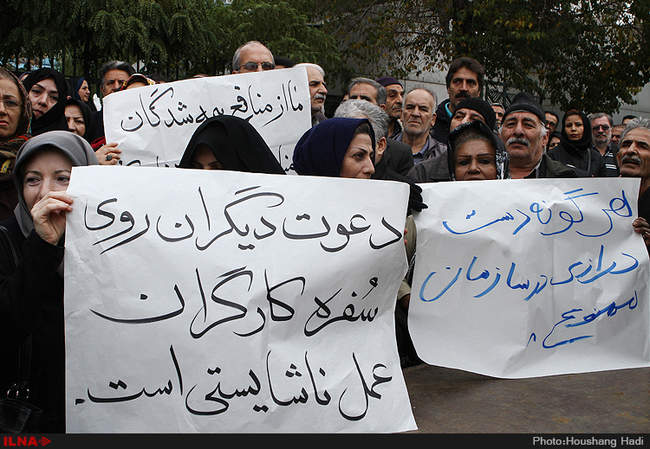 ما از منافع بیمه شدگان
دعوت دیگران روی
سفره کارگران
عمل ناشایستی است.
هر گونه دست
درازی در سازمان
ILNA
Photo:Houshang Hadi